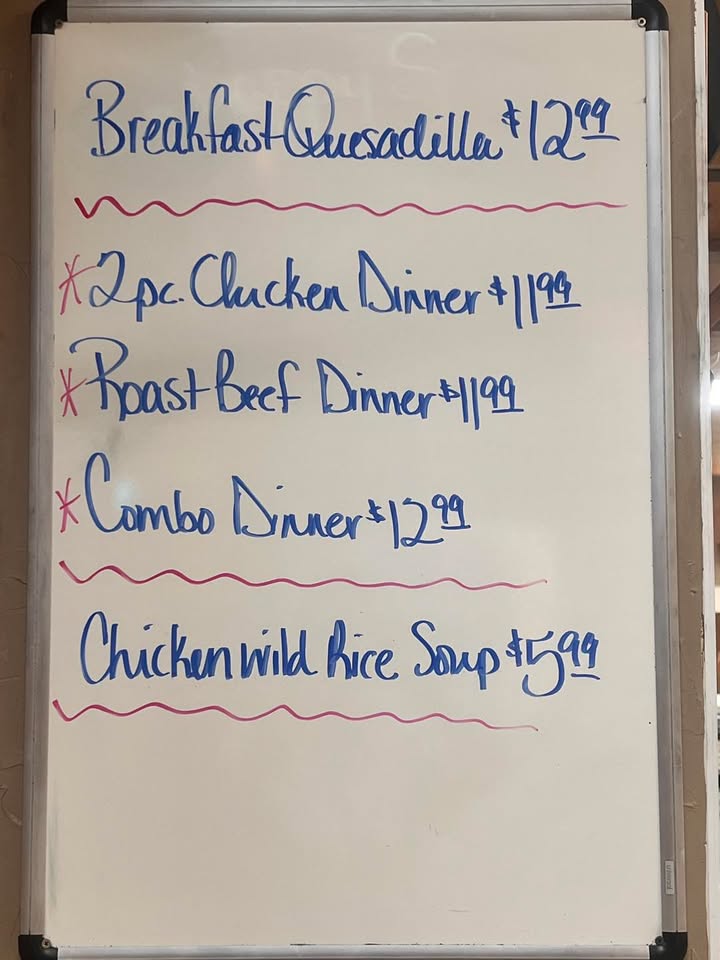 Breakfast Quesadilla $12.99
* 2pc. Chicken Dinner $11.99
* Roast Beef Dinner $11.99
* Combo Dinner $12.99
Chicken Wild Rice Soup $5.99